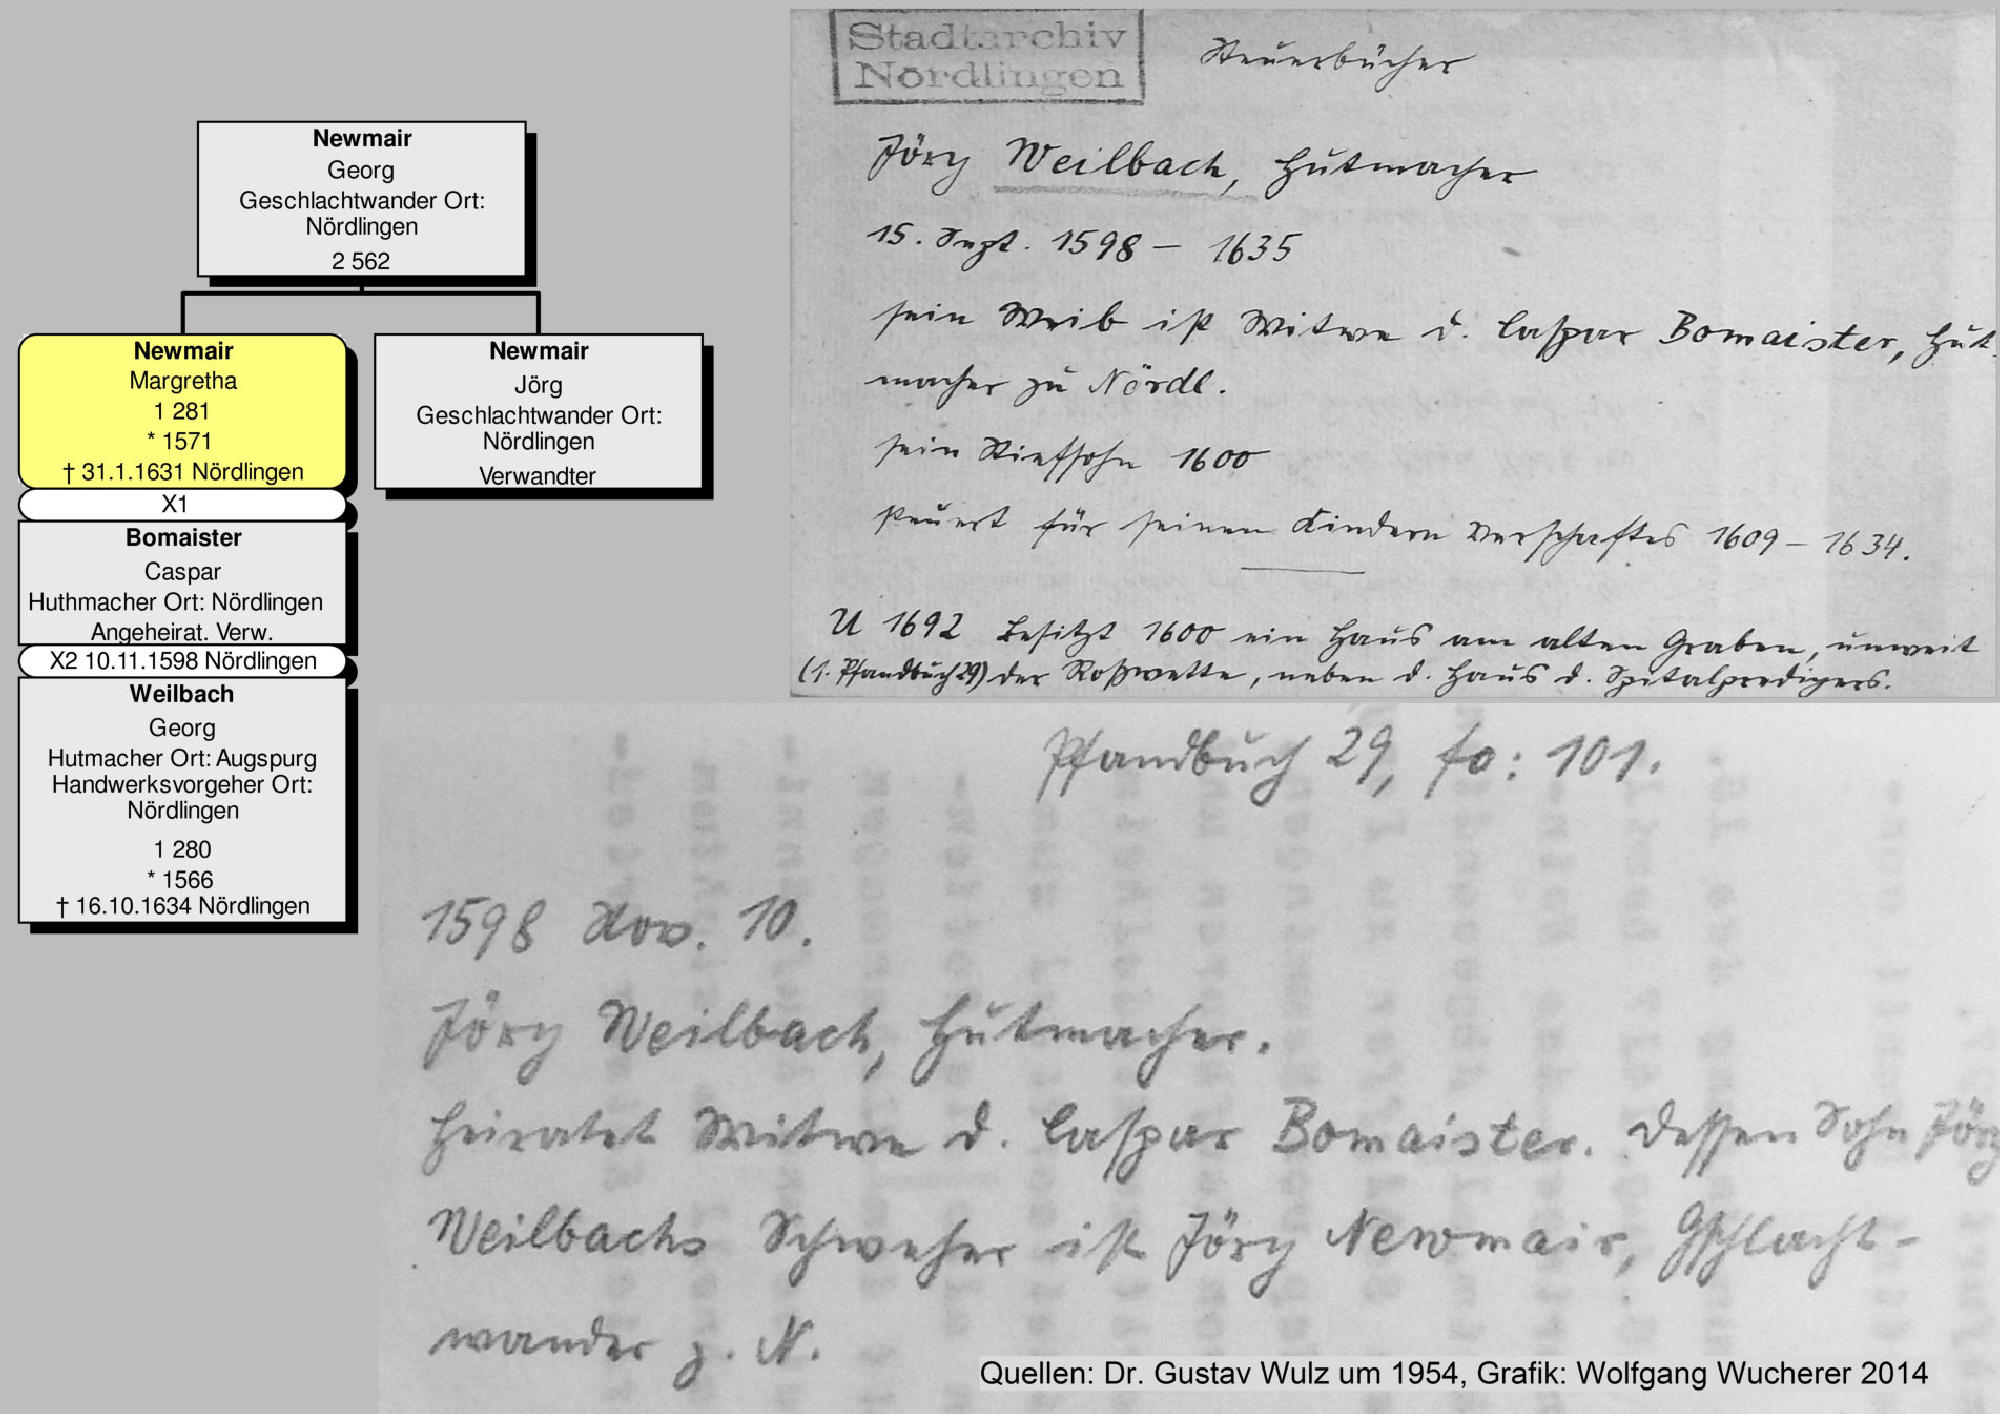 Newmair
Georg
Geschlachtwander Ort:
Nördlingen
2 562
Newmair
Margretha
1 281
* 1571
† 31.1.1631 Nördlingen
X1
Bomaister
Caspar
Huthmacher Ort: Nördlingen
Angeheirat. Verw.
X2 10.11.1598 Nördlingen
Weilbach
Georg
Hutmacher Ort: Augspurg
Handwerksvorgeher Ort:
Nördlingen
1 280
* 1566
† 16.10.1634 Nördlingen
Newmair
Jörg
Geschlachtwander Ort:
Nördlingen
Verwandter
Stadtarchiv
Nördlingen
Steuerbücher
Jörg Weilbach, Hutmacher
15. Sept. 1598 – 1635
sein Weib ist Witwe d. Caspar Bomaister, Hut-
macher zu Nördl.
sein Stiefsohn 1600
steuert für seinen Kindern 1609 – 1634.
U 1692 Besitzt 1600 ein Haus am alten Graben, unweit
(1. Pfandbuch 29) der Roßwette, neben d. Haus d. Spitalpredigers.
Pfandbuch 29, fo: 101.
1598 Nov. 10.
Jörg Weilbach, Hutmacher.
Heiratet Witwe d. Caspar Bomaister. Dessen Sohn Jörg
Weilbachs Schweher ist Jörg Newmair, Gschlacht-
wander z. N.
Quellen: Dr. Gustav Wulz um 1954, Grafik: Wolfgang Wucherer 2014